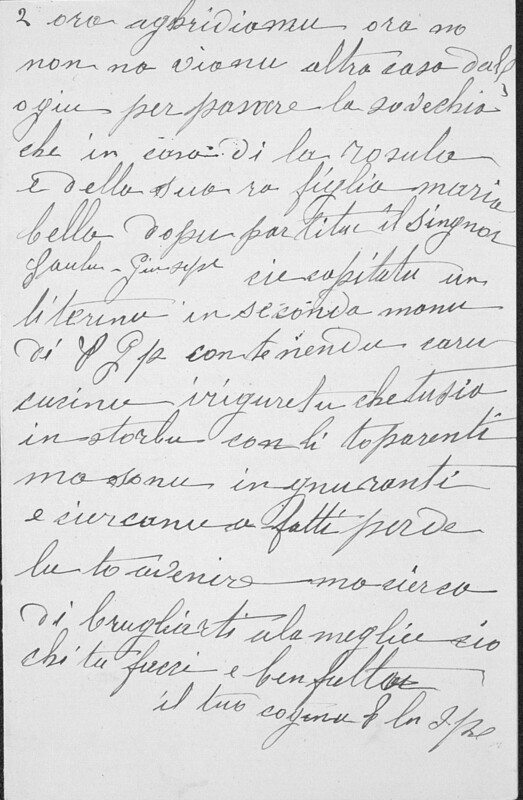 2 ora agbridiamu ora no
non na vianu altra casa dal
ogiu per passare la sovechia
che in casa di la rosula
e della sua ra figlia maria
bella dopu partitu il singnor
Paulu - Giusepe cie capitatu un
literinu in seconda manu
di contenendu caru
cucinu iriguretu che tu sia
in storbu con li to parenti
ma sonu ingnuranti
e cercanu a fatti perde
lu to avenire ma cierca
di brugliarti a la megliu cio
chi tu facci e ben fattu
il tuo cuginu